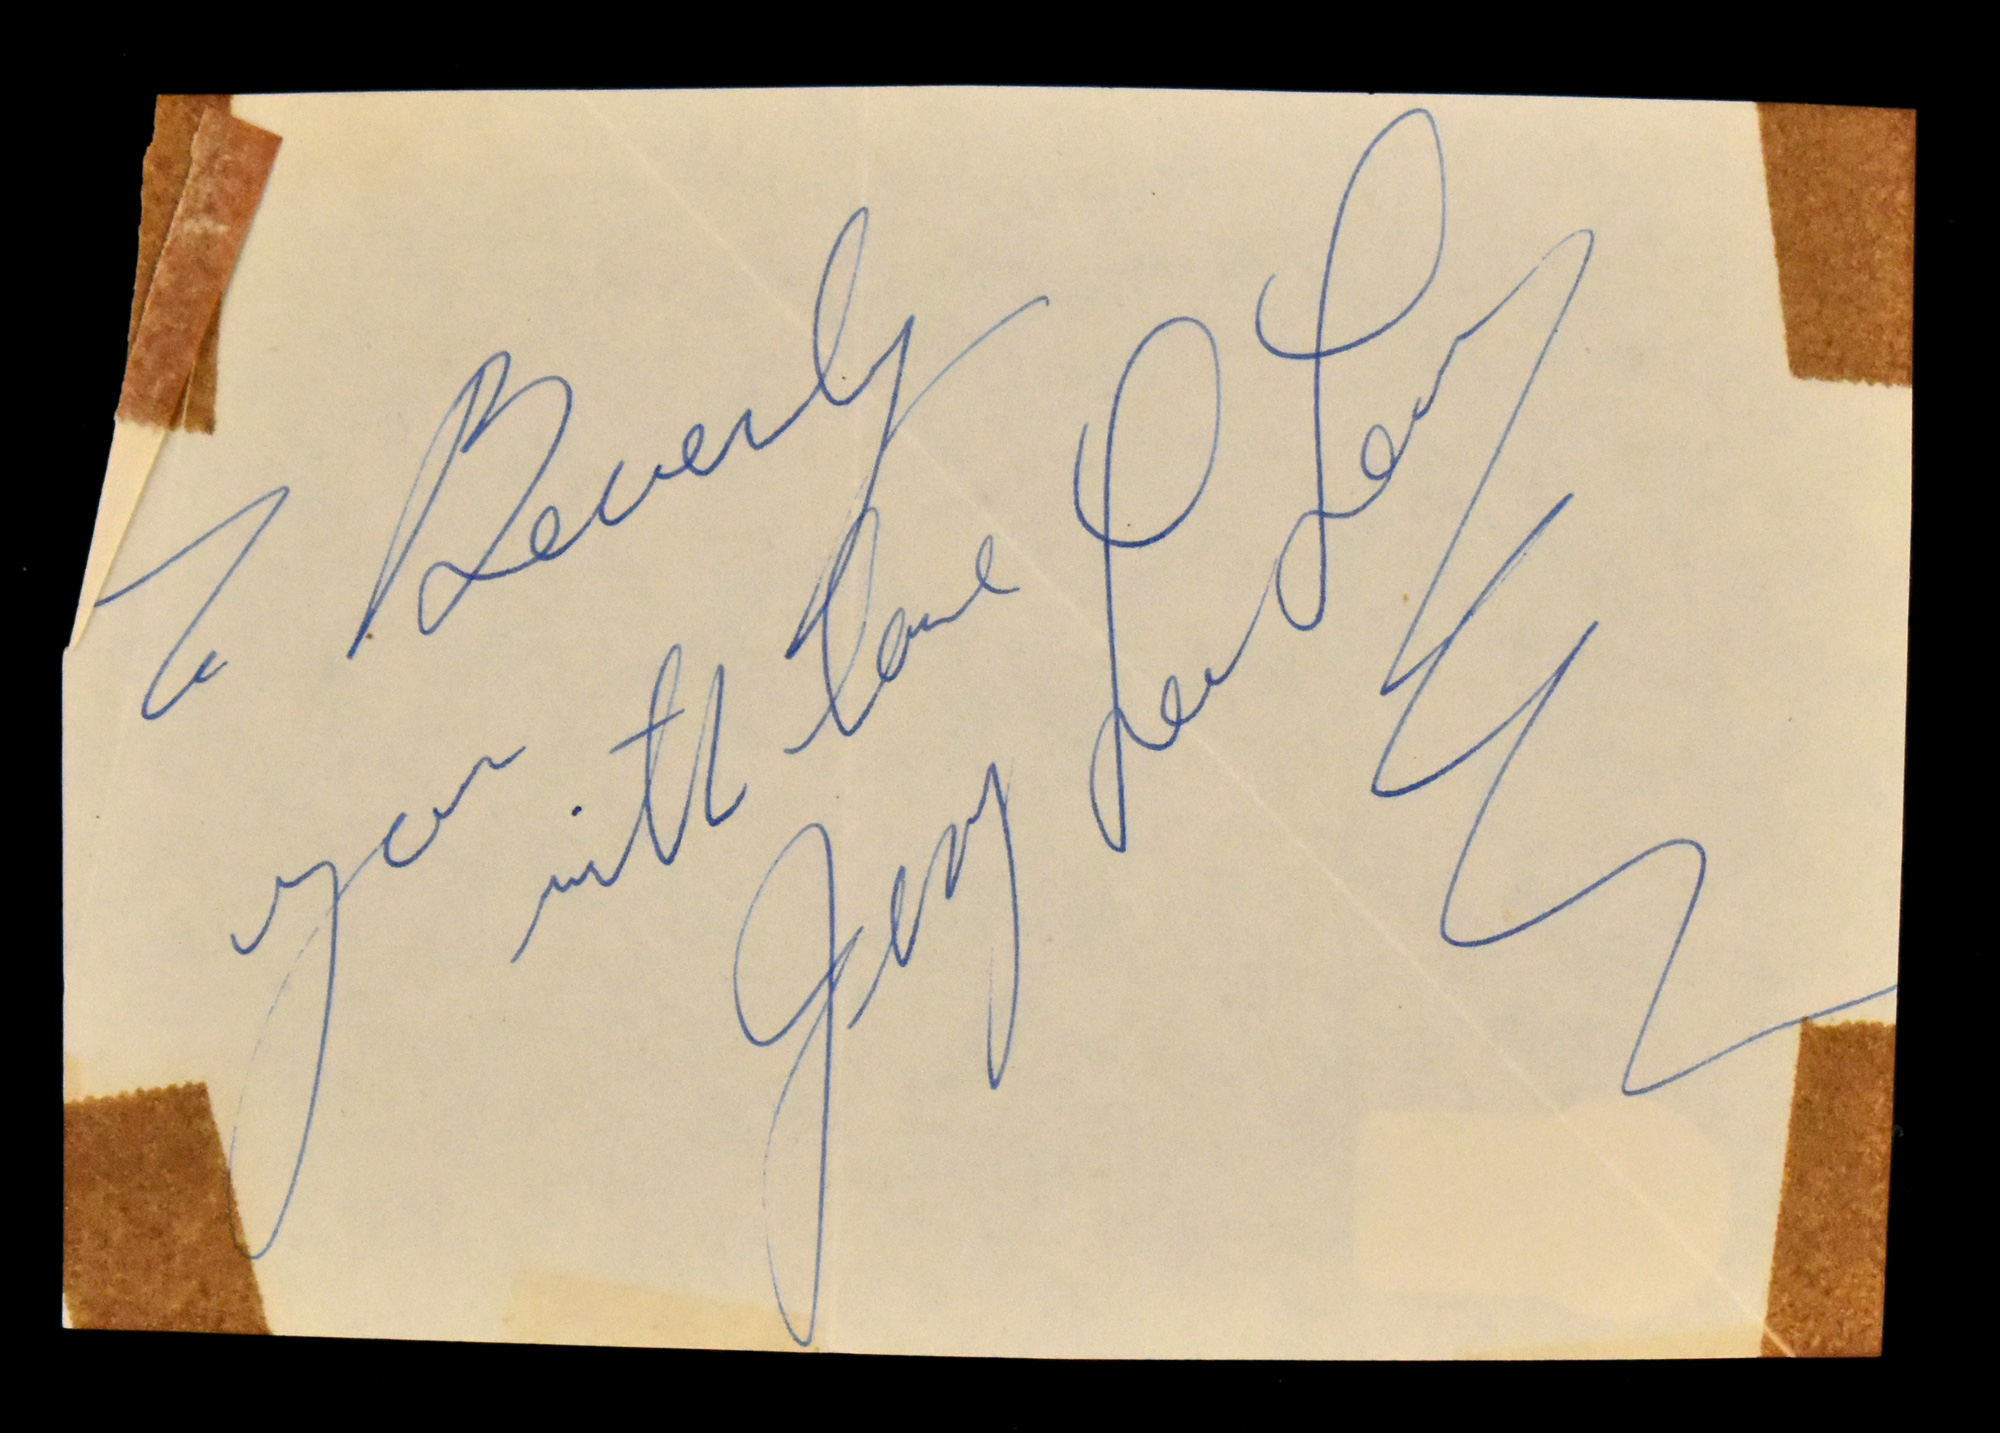 To Beverly
your
with love
Jerry Lee Lewis